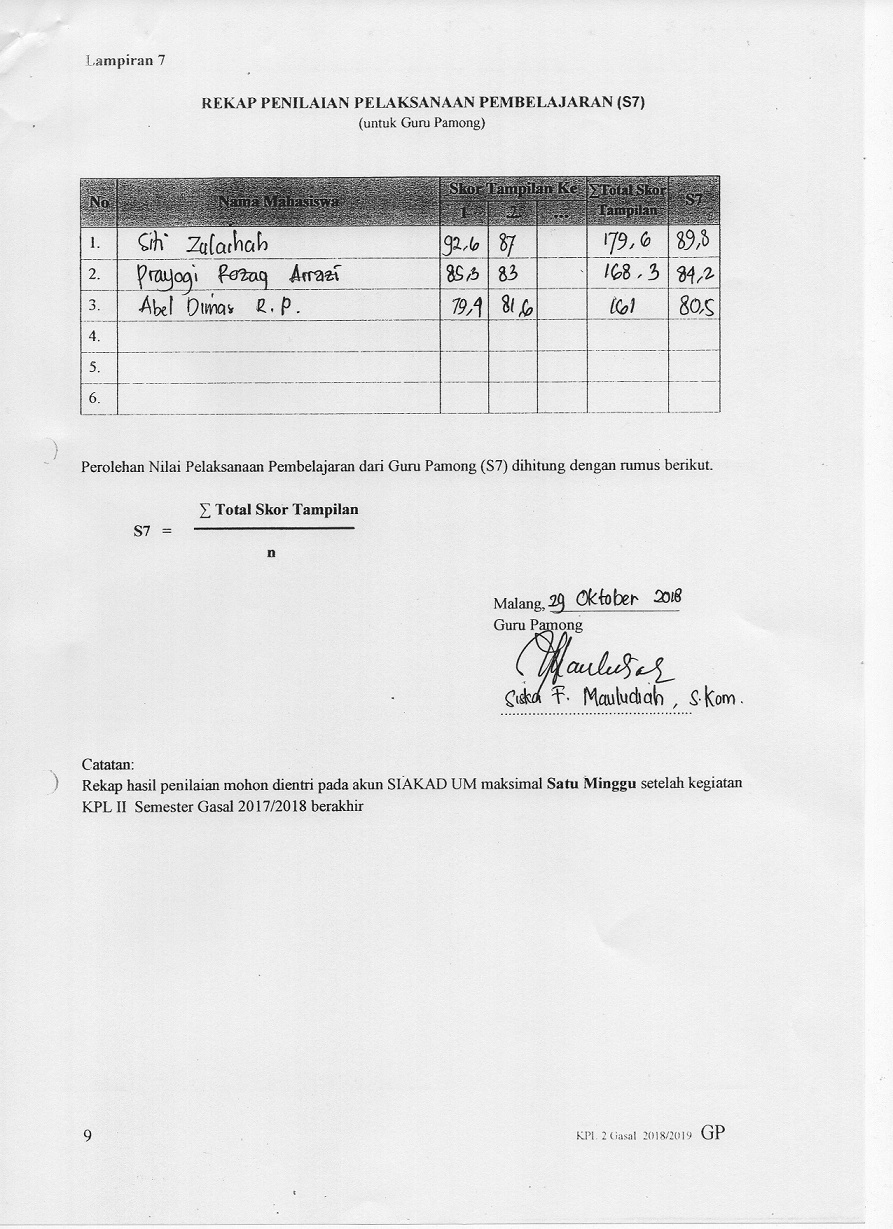 Lampiran 7
REKAP PENILAIAN PELAKSANAAN PEMBELAJARAN (S7)
(untuk Guru Pamong)
No Nama Mahasiswa Skor Tampilan Ke ∑Total Skor Tampilan S7
1 2 ...
1. Siti Zulaihah 92,6 87 179,6 89,8
2. Prayogi Rozaq Arrazi 85,3 83 168.3 84,2
3. Abel Dimas R.P. 79,4 81,6 161 80,5
4.
5.
6.
Perolehan Nilai Pelaksanaan Pembelajaran dari Guru Pamong (S7) dihitung dengan rumus berikut.
∑ Total Skor Tampilan
S7 =
n
Malang, 29 Oktober 2018
Guru Pamong
Siska F. Mauludiah, S.Kom.
Catatan:
Rekap hasil penilaian mohon dientri pada akun SIAKAD UM maksimal Satu Minggu setelah kegiatan
KPL II Semester Gasal 2017/2018 berakhir
9 KPL 2 Gasal 2018/2019 GP